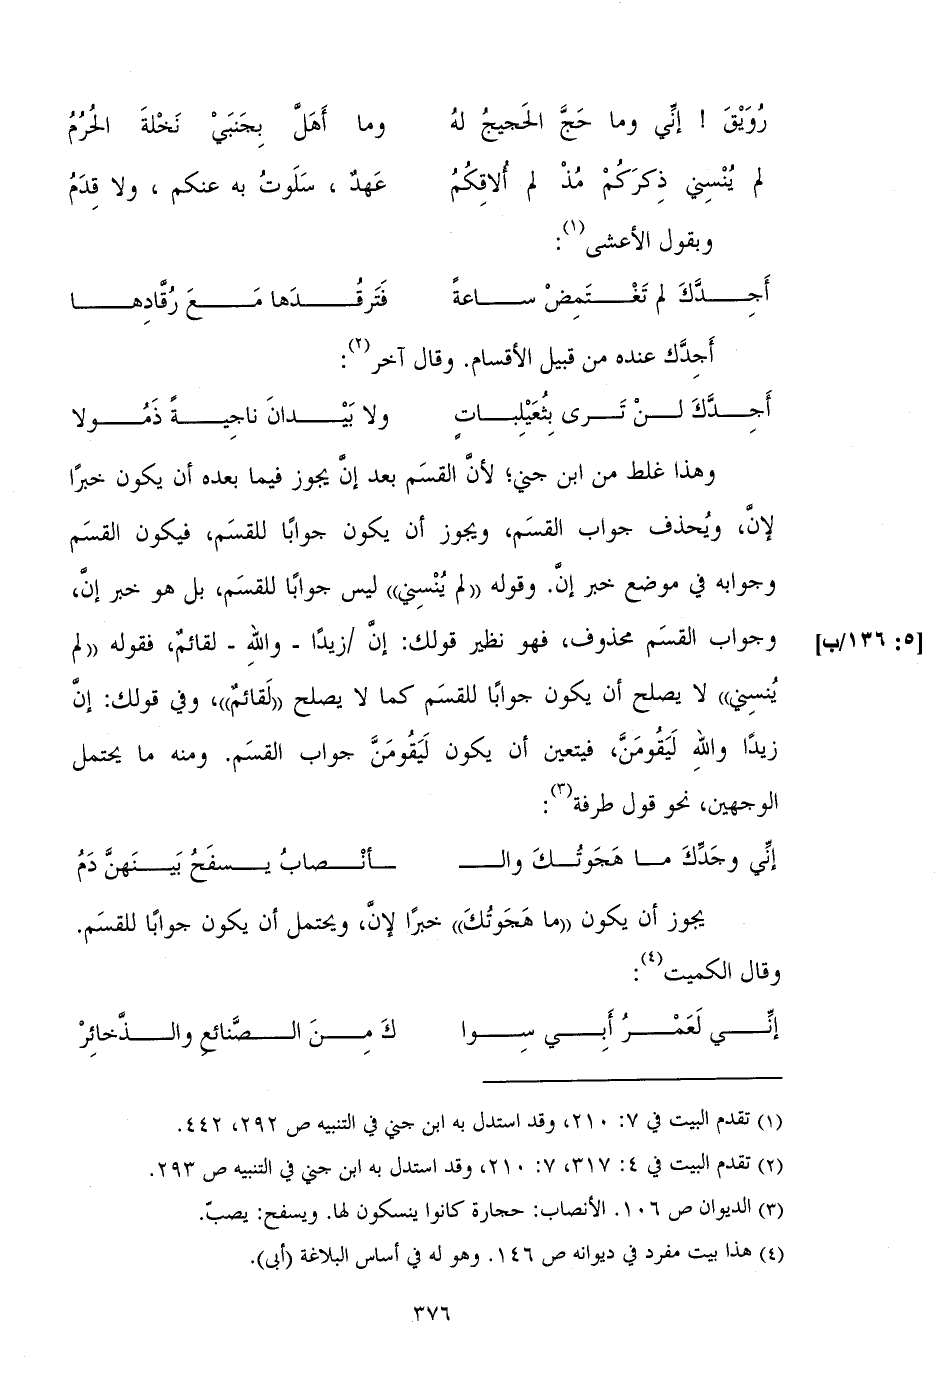 رُوَيْقَ ! إنِّي وما حَجَّ الحَجيجُ لهُ وما أَهَلَّ بِجَنبَيْ نَخْلةَ الحُرُمُ
لم يُنْسِني ذِكرَكُمْ مُذْ لم أُلاقِكُمُ عَهدٌ ، سَلَوتُ به عنكم ، ولا قِدَمُ
وبقول الأعشى(١):
أَجِـــدَّكَ لم تَغْـــتَمِضْ ســـاعةً فَتَرقُـــدَها مَـــعَ رُقَّادِهـــا
أَجِدَّك عنده من قبيل الأقسام. وقال آخر(٢):
أَجِـــدَّكَ لـــنْ تَـــرى بِثُعَيْلِبـــاتٍ ولا بَيْـــدانَ ناجِيـــةً ذَمُـــولا
وهذا غلط من ابن جني؛ لأنَّ القسَم بعد إنَّ يجوز فيما بعده أن يكون خبرًا
لإنَّ، ويُحذف جواب القسَم، ويجوز أن يكون جوابًا للقسَم، فيكون القسَم
وجوابه في موضع خبر إنَّ. وقوله ((لم يُنْسِني)) ليس جوابًا للقسَم، بل هو خبر إنَّ،
وجواب القسَم محذوف، فهو نظير قولك: إنَّ /زيدًا - واللهِ - لقائمٌ، فقوله ((لم [٥: ١٣٦/ب]
يُنسِني)) لا يصلح أن يكون جوابًا للقسَم كما لا يصلح ((لَقائمٌ))، وفي قولك: إنَّ
زيدًا واللهِ لَيَقُومَنَّ، فيتعين أن يكون لَيَقُومَنَّ جواب القسَم. ومنه ما يحتمل
الوجهين، نحو قول طرفة(٣):
إنِّي وجَدِّكَ مـــا هَجَوتُـــكَ والـــ ـــأنْـــصابُ يـــسفَحُ بَيـــنَهنَّ دَمُ
يجوز أن يكون ((ما هَجَوتُكَ)) خبرًا لإنَّ، ويحتمل أن يكون جوابًا للقسَم.
وقال الكميت(٤):
إنِّـــي لَعَمْـــرُ أَبـــي سِـــوا كَ مِـــنَ الـــصَّنائعِ والـــذَّخائِرْ
(١) تقدم البيت في ٧: ٢١٠، وقد استدل به ابن جني في التنبيه ص ٢٩٢، ٤٤٢.
(٢) تقدم البيت في ٤: ٣١٧، ٧: ٢١٠، وقد استدل به ابن جني في التنبيه ص ٢٩٣.
(٣) الديوان ص ١٠٦. الأنصاب: حجارة كانوا ينسكون لها. ويسفح: يصبّ.
(٤) هذا بيت مفرد في ديوانه ص ١٤٦. وهو له في أساس البلاغة (أبى).
٣٧٦